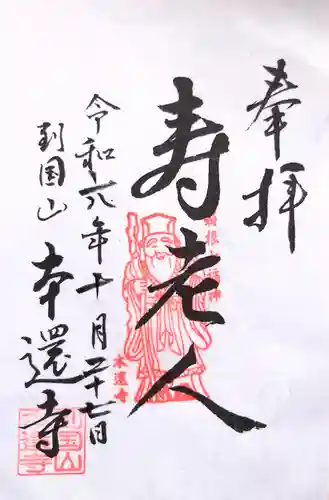 奉拝
寿老人
令和六年十月二十七日
到国山
本還寺
本還寺